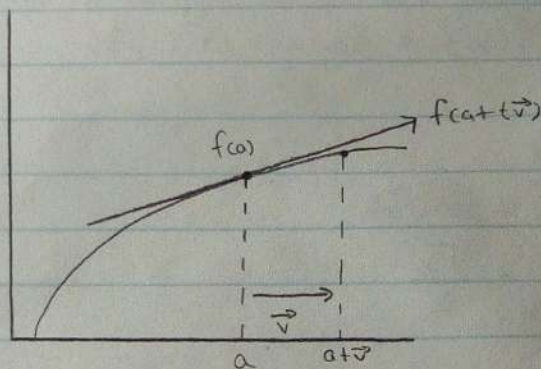 f(a+t\vec{v})
f(a)
\vec{v}
a
a+\vec{v}